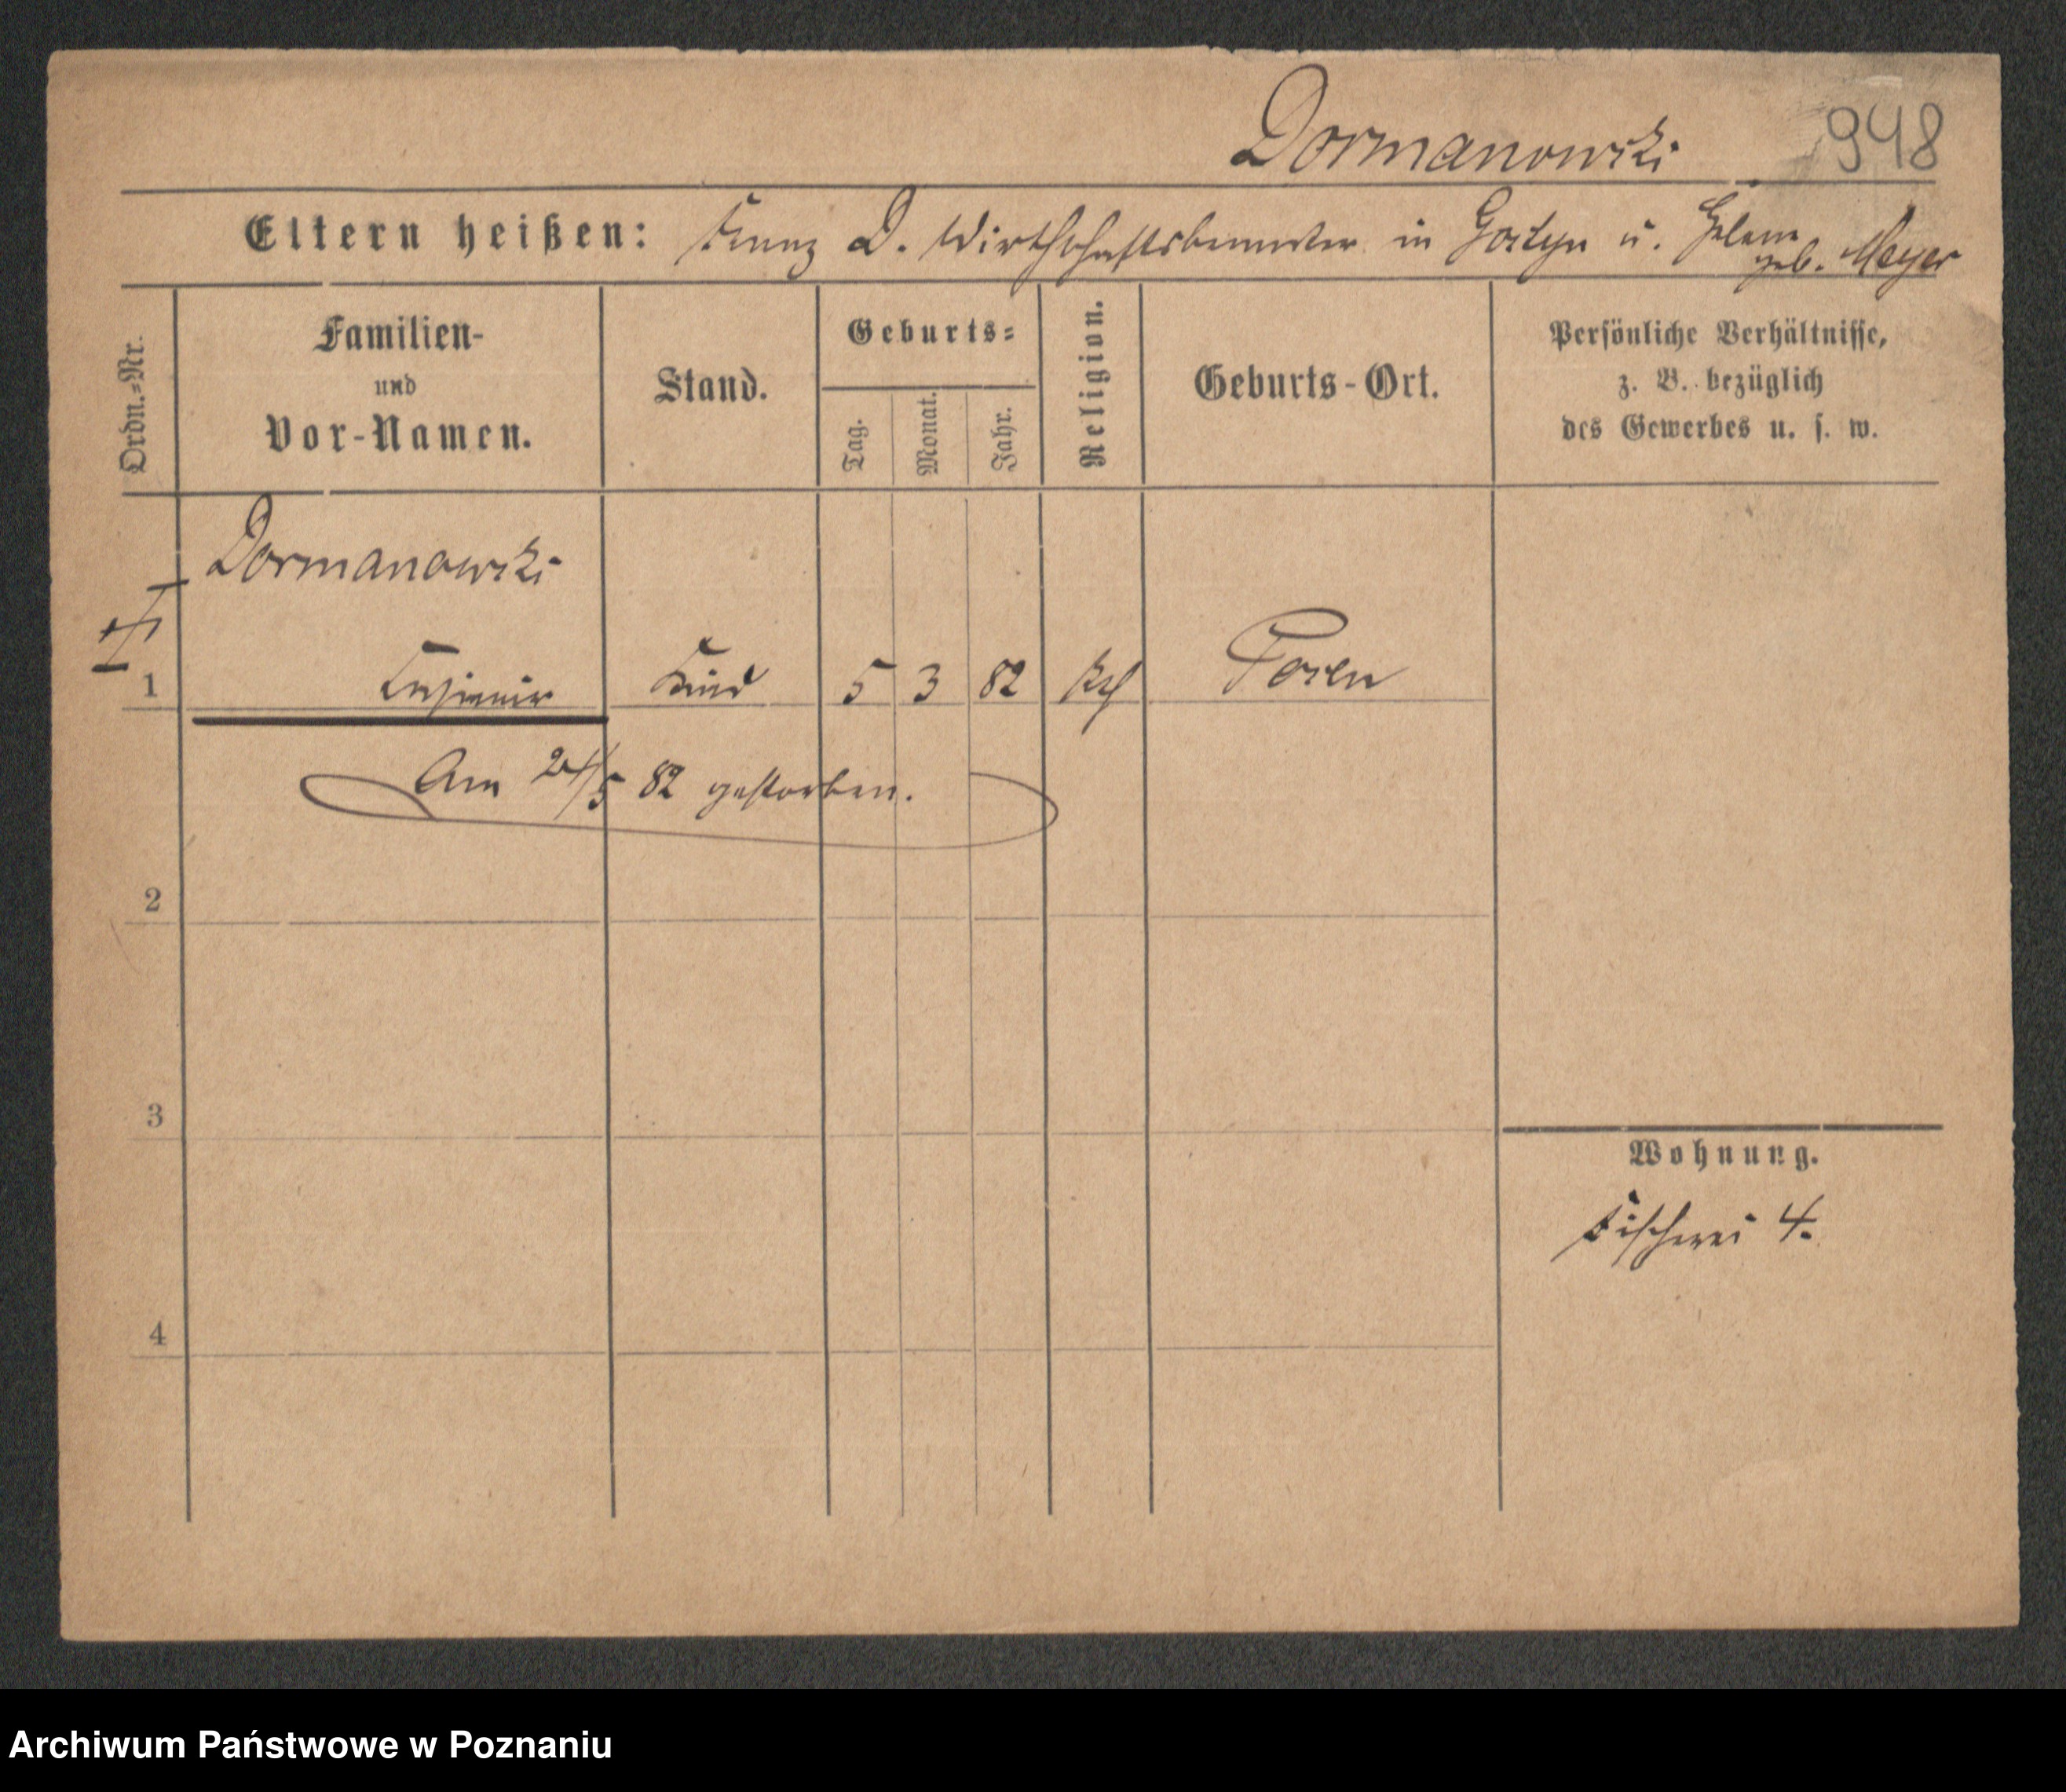 Dormanowski 948
Eltern heißen: Franz D. Wirthschaftsbeamter in Gostyn u. Helene
geb. Meyer
Ordn.=Nr.
Familien-
und
Vor-Namen.
Stand.
Geburts=
Tag.
Monat.
Jahr.
Religion.
Geburts-Ort.
Persönliche Verhältnisse,
z. B. bezüglich
des Gewerbes u. s. w.
Dormanowski
1 Casimir Kind 5 3 82 kth Posen
Am 24/5 82 gestorben.
2
3
Wohnung.
Fischerei 4.
4
Archiwum Państwowe w Poznaniu